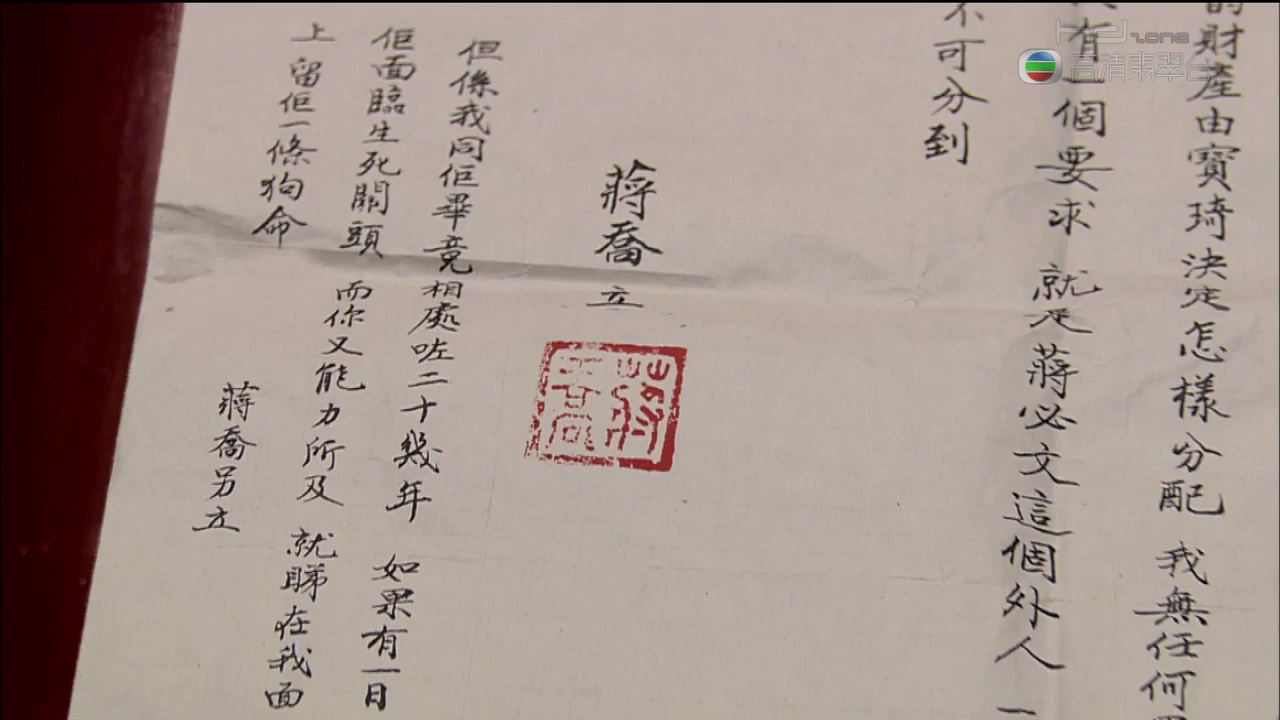 財產由寶琦決定怎樣分配 我無任何
有一個要求 就是蔣必文這個外人 一
不可分到
蔣喬 立
蔣喬
但係我同佢畢竟相處咗二十幾年 如果有一日
佢面臨生死關頭 而你又能力所及 就睇在我面
上 留佢一條狗命
蔣喬另立
高清翡翠台